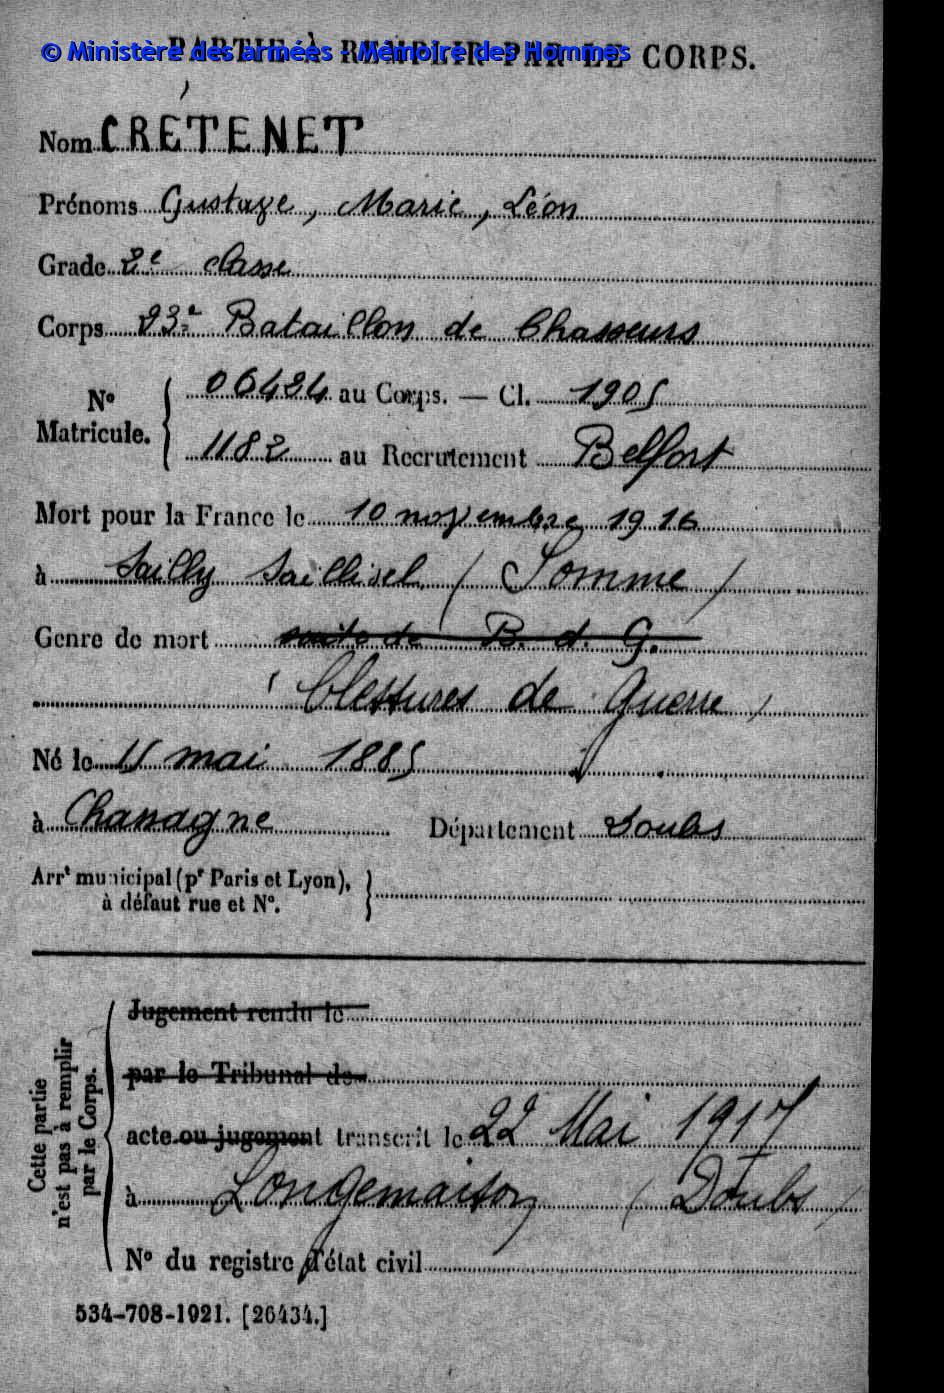 © Ministère des armées - Mémoire des Hommes
PARTIE À REMPLIR PAR LE CORPS.
Nom CRÉTENET
Prénoms Gustave, Marie, Léon
Grade 2e classe
Corps 23e Bataillon de Chasseurs
No Matricule. { 06424 au Corps. — Cl. 1905
1182 au Recrutement Belfort
Mort pour la France le 10 novembre 1916
à Sailly Saillisel (Somme)
Genre de mort suite de B. d. G.
(blessures de guerre)
Né le 15 mai 1885
à Chassagne Département Doubs
Arrt municipal (pr Paris et Lyon),
à défaut rue et No.
Cette partie
n'est pas à remplir
par le Corps.
Jugement rendu le
par le Tribunal de
acte ou jugement transcrit le 22 Mai 1917
à Longemaison (Doubs)
No du registre d'état civil
534-708-1921. [26434.]